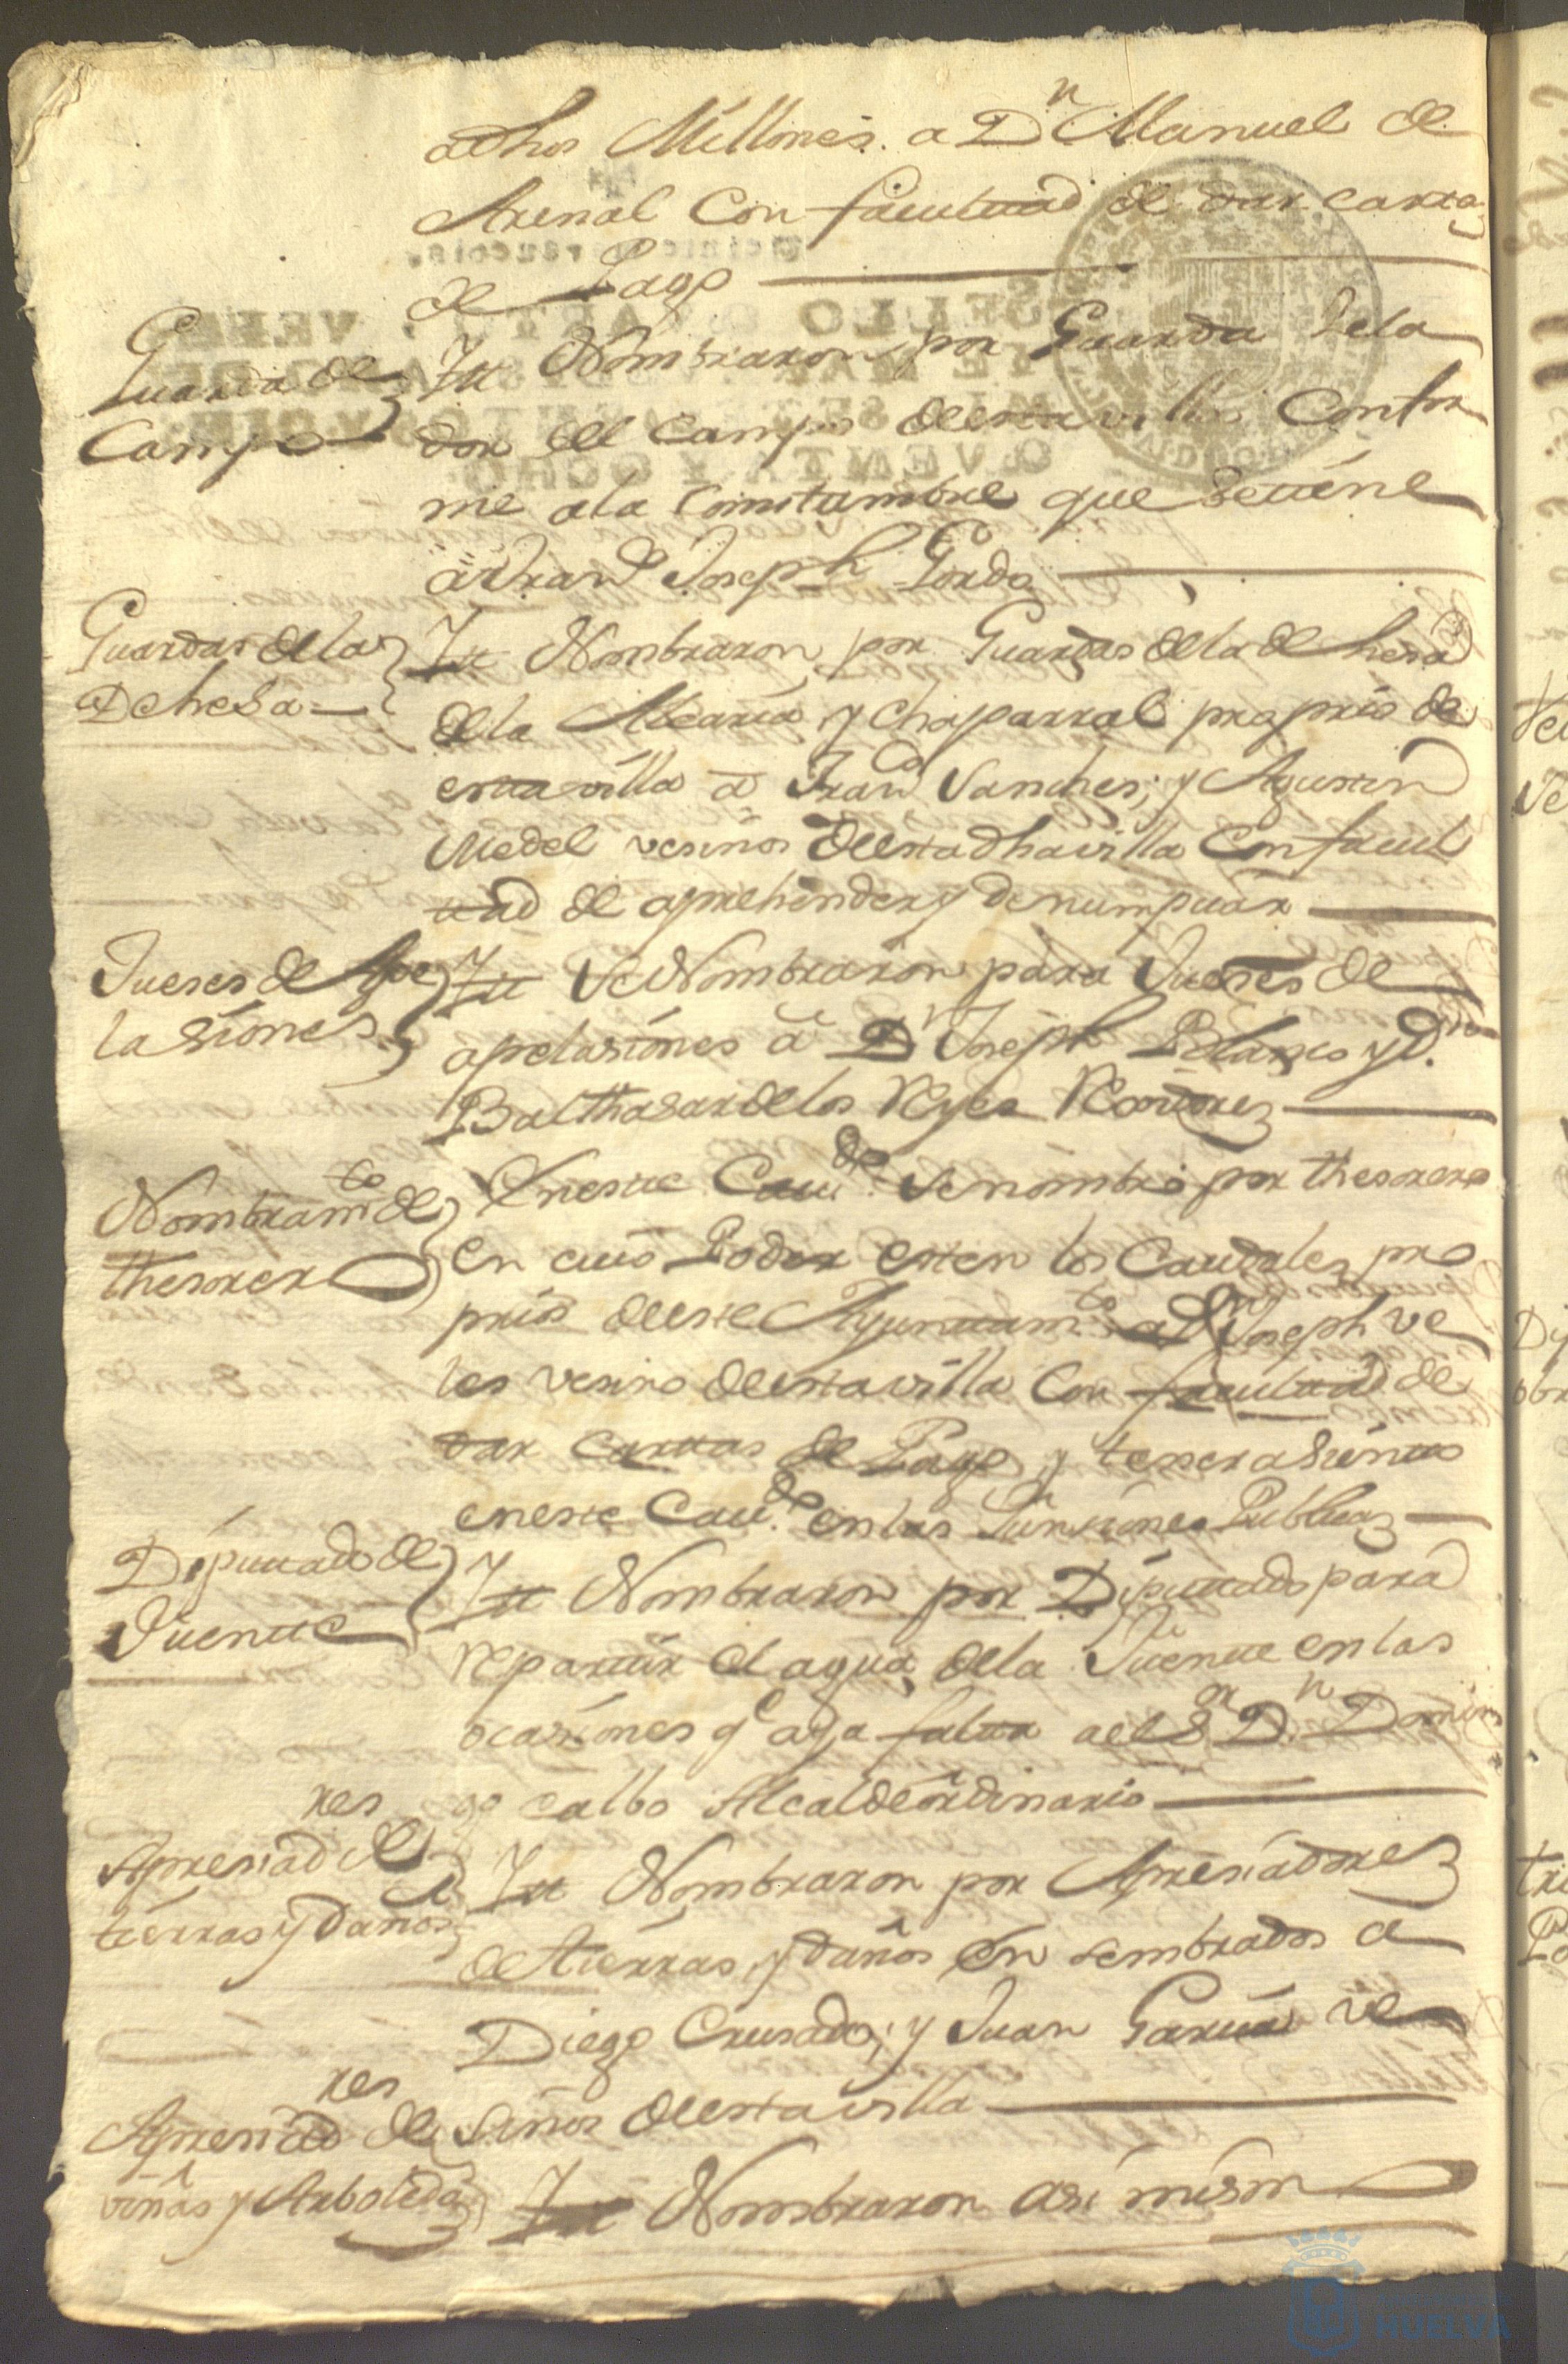 adhos Millones a Dn Manuel de
Arenal Con facultad de dar carta
de Pago
Guarda de
Campo
Itt Nombraron por Guarda Sela
dor del Campo de esta villa Confor
me a la Constumbre que se tiene
a Franco Joseph Gordo
Guardas de la
Dehesa
Itt Nombraron por Guardas de la dehesa
de la Alcaria y chaparral proprio de
esta villa a Franco Sanches, y Agustin
Medel vesinos de esta dha villa Con facul
tad de aprehender y denumpciar
Jueses de Ape
lasiones
Itt Se Nombraron para Jueses de
apelasiones a Dn Joseph Polanco y Dn
Balthasar de los Reyes Rexidores
Nombramto de
thesorero
En este Cavdo se nombró por thesorero
en cuio Poder esten los Caudales pro
prios de este Ayuntamto a Dn Joseph Ve
les vesino de esta villa Con facultad de
dar cartas de Pago, y tener asiento
en este Cavdo en las Funsiones Publicas
Diputtado de
Fuentte
Itt Nombraron por Diputtado para
repartir el agua de la Fuente en las
ocasiones qe aya falta a el Sor Dn Domin
go calbo Alcalde ordinario
Apresiadres de
tierras y daños
Itt Nombraron por Apresiadores
de tierras, y daños en sembrados a
Diego Crusado; y Juan Garcia ve
sinos de esta villa
Apresiadres de
viñas y Arboleda
Itt Nombraron asi mismo
HUELVA